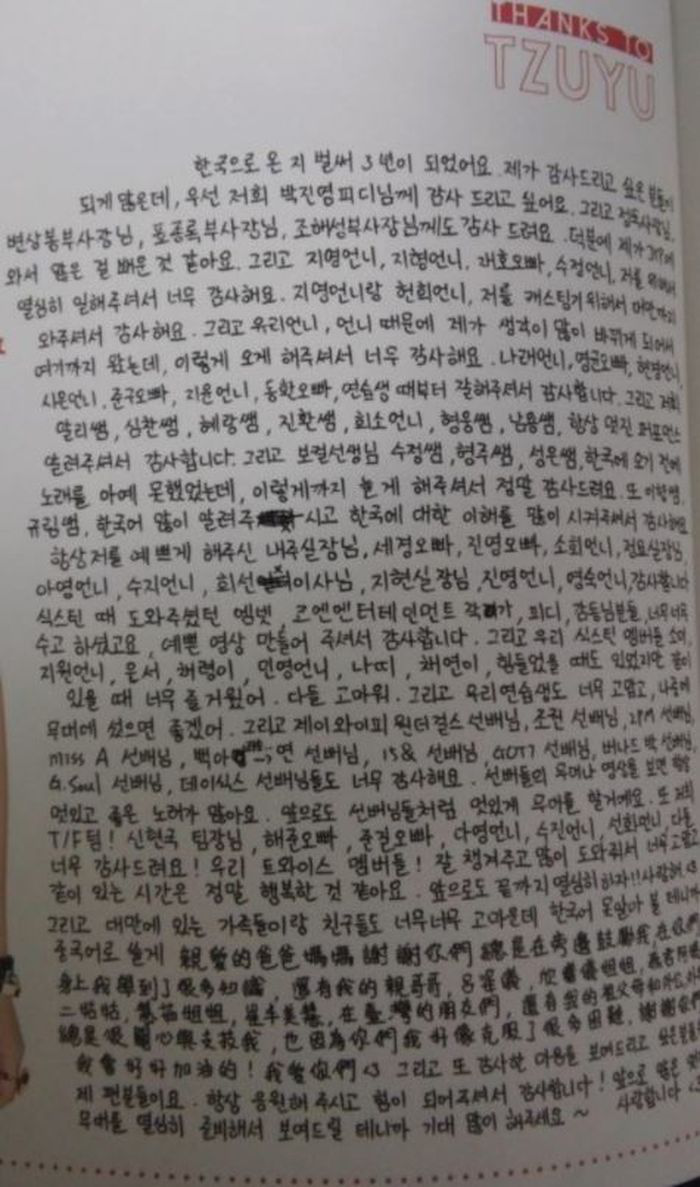 THANKS TO
TZUYU
한국으로 온 지 벌써 3년이 되었어요. 제가 감사드리고 싶은 분들이
되게 많은데, 우선 저희 박진영피디님께 감사 드리고 싶어요. 그리고 정욱사장님,
변상봉부사장님, 표종록부사장님, 조해성부사장님께도 감사 드려요. 덕분에 제가 JYP에
와서 많은 걸 배운 것 같아요. 그리고 지영언니, 지형언니, 재호오빠, 수정언니, 저를 위해서
열심히 일해주셔서 너무 감사해요. 지영언니랑 헌희언니, 저를 캐스팅하기위해서 대만까지
와주셔서 감사해요. 그리고 유리언니, 언니 때문에 제가 생각이 많이 바뀌게 되어서
여기까지 왔는데, 이렇게 오게 해주셔서 너무 감사해요. 나래언니, 영균오빠, 현경언니,
샤온언니, 준구오빠, 지윤언니, 동환오빠, 연습생 때부터 잘해주셔서 감사합니다. 그리고 저희
댈리쌤, 심찬쌤, 혜랑쌤, 진환쌤, 희소언니, 형웅쌤, 남용쌤, 항상 멋진 퍼포먼스
알려주셔서 감사합니다. 그리고 보컬선생님 수정쌤, 형주쌤, 성은쌤, 한국에 오기 전에
노래를 아예 못했었는데, 이렇게까지 늘게 해주셔서 정말 감사드려요. 또
규림쌤, 한국어 많이 알려주시고 한국에 대한 이해를 많이 시켜주셔서 감사해요
항상 저를 예쁘게 해주신 내주실장님, 세경오빠, 진영오빠, 소희언니, 정요실장님,
아영언니, 수지언니, 희선이사님, 지현실장님, 진영언니, 영숙언니, 감사합니다
식스틴 때 도와주셨던 엠넷, 코엔엔터테인먼트 작가, 피디, 감독님분들, 너무너무
수고 하셨고요, 예쁜 영상 만들어 주셔서 감사합니다. 그리고 우리 식스틴 멤버들 소미,
지원언니, 은서, 채령이, 민영언니, 나띠, 채연이, 힘들었을 때도 있었지만 같이
있을 때 너무 즐거웠어. 다들 고마워. 그리고 우리연습생도 너무 고맙고, 나중에
무대에 섰으면 좋겠어. 그리고 제이와이피 원더걸스 선배님, 조권 선배님, 2PM 선배님,
miss A 선배님, 백아연 선배님, 15& 선배님, GOT7 선배님, 버나드 박 선배님,
G.Soul 선배님, 데이식스 선배님들도 너무 감사해요. 선배들의 무대나 영상을 보면 항상
멋있고 좋은 노래가 많아요. 앞으로도 선배님들처럼 멋있게 무대를 할거예요. 또 저희
T/F팀! 신현국 팀장님, 해준오빠, 준걸오빠, 다영언니, 수진언니, 선화언니, 다들
너무 감사드려요! 우리 트와이스 멤버들! 잘 챙겨주고 많이 도와줘서 너무 고맙고
같이 있는 시간은 정말 행복한 것 같아요. 앞으로도 끝까지 열심히하자!! 사랑해 <3
그리고 대만에 있는 가족들이랑 친구들도 너무너무 고마운데 한국어 못알아 볼 테니까
중국어로 쓸게 親愛的爸爸媽媽謝謝你們總是在旁邊鼓勵我, 在你們
身上我學到了很多知識, 還有我的親哥哥,
二姑姑, 在臺灣的朋友們, 還有我的祖父母和外公
總是很關心與支持我, 也因為你們我好像克服了很多困難, 謝謝你們
我會好好加油的! 我愛你們 <3 그리고 또 감사한 마음을 보여드리고 싶은분들은
제 팬분들이요. 항상 응원해 주시고 힘이 되어주셔서 감사합니다! 앞으로 많은
무대를 열심히 준비해서 보여드릴 테니까 기대 많이 해주세요 ~ 사랑합니다 <3